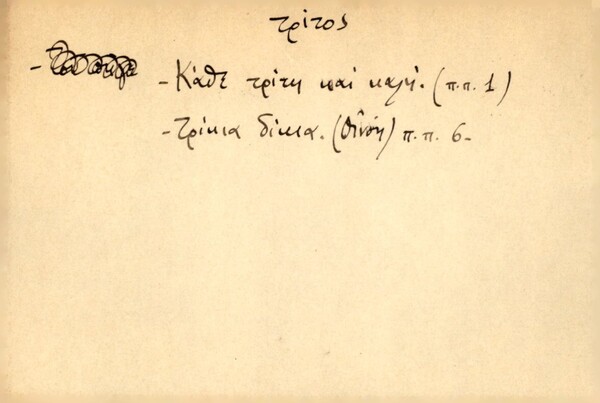 τρίτος
- Κάθε τρίτη και καλή. (π.π. 1)
- Τρίκια δίκια. (Οἰνόη) π.π. 6-